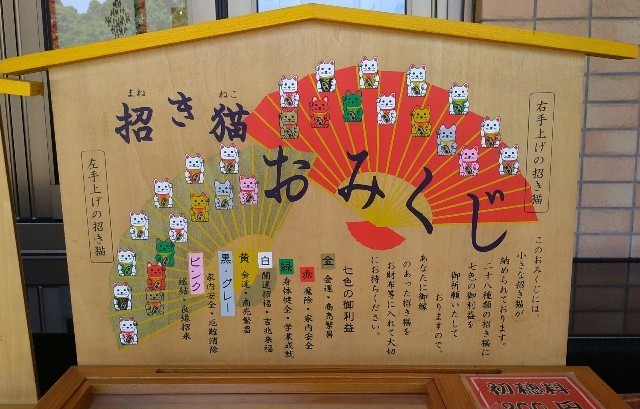 招き猫
まね
ねこ
おみくじ
右手上げの招き猫
左手上げの招き猫
このおみくじには、
小さな招き猫が
納められております。
二十八種類の招き猫に
七色の御利益を
御祈願いたして
おりますので、
あなたに御縁
のあった招き猫を
お財布等に入れて大切
にお持ちください。
七色の御利益
金 金運・商売繁昌
赤 魔除・家内安全
緑 身体健全・学業成就
白 開運招福・吉兆来福
黄 金運・商売繁昌
黒・グレー 家内安全・厄難消除
ピンク 縁結・良縁招来
初穂料
200円